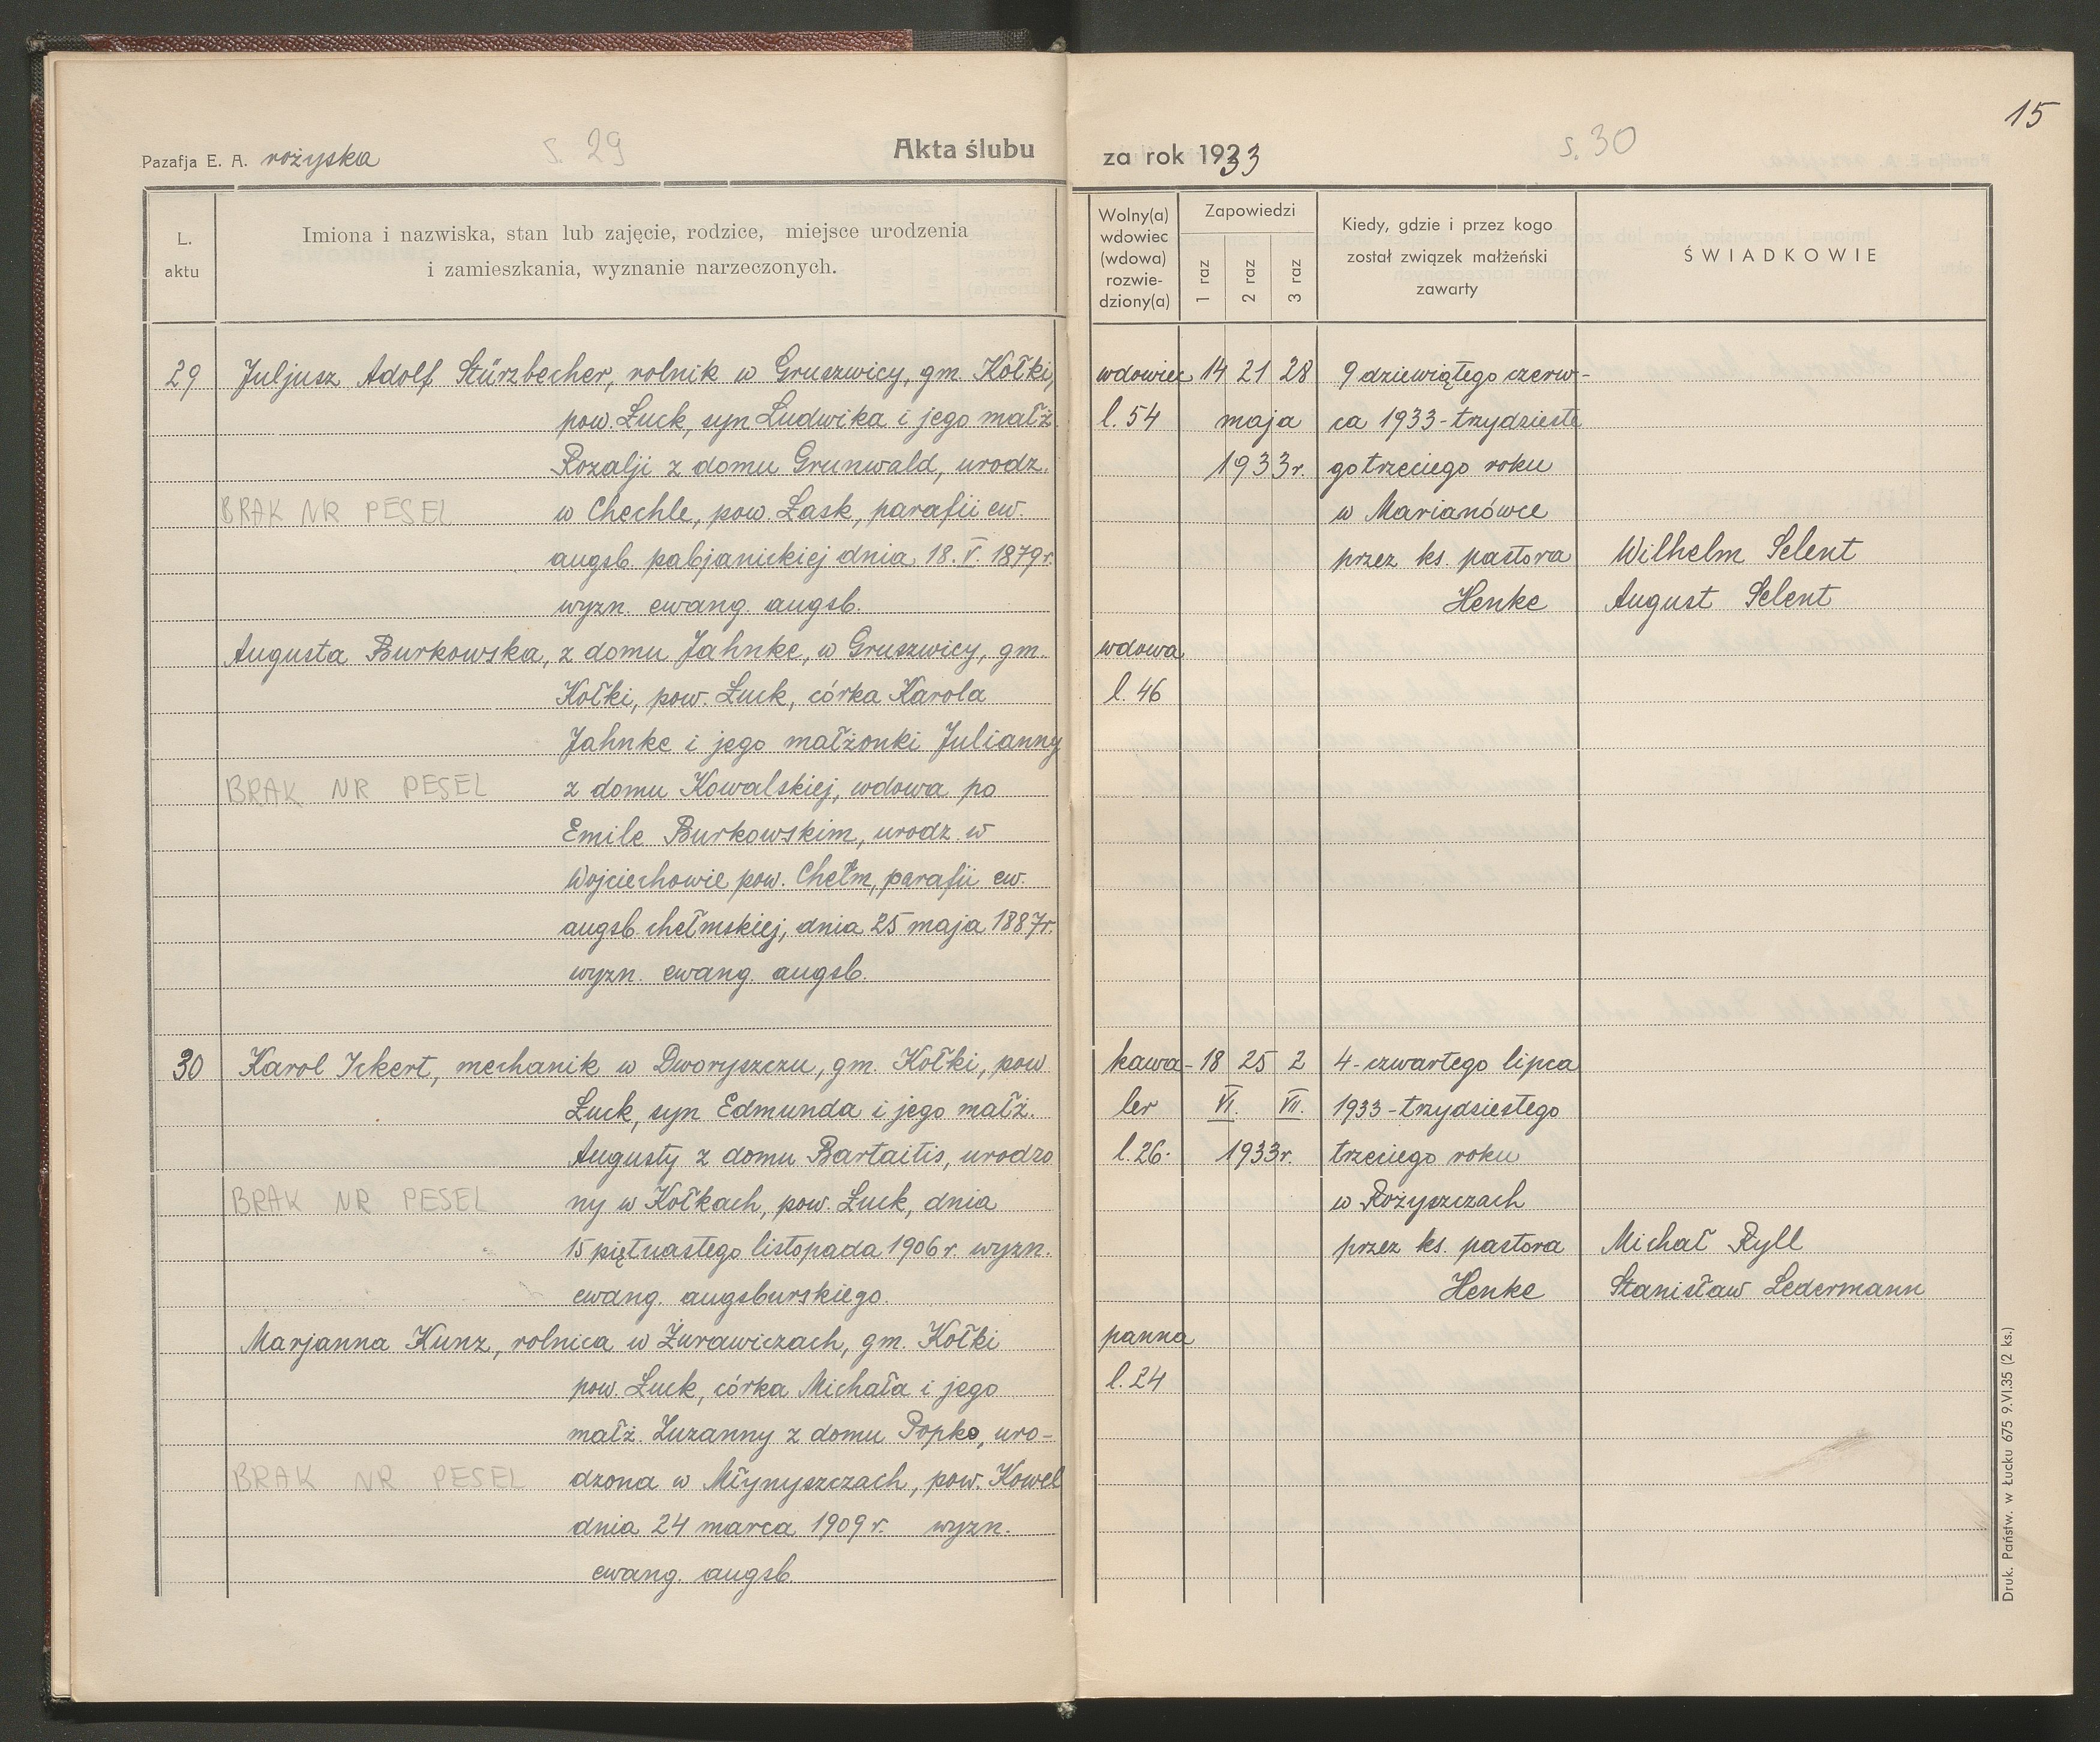 15
Pazafja E. A. rożyska
s. 29
Akta ślubu
za rok 1933
s. 30
L. aktu
Imiona i nazwiska, stan lub zajęcie, rodzice, miejsce urodzenia
i zamieszkania, wyznanie narzeczonych.
Wolny(a)
wdowiec
(wdowa)
rozwie-
dziony(a)
Zapowiedzi
1 raz
2 raz
3 raz
Kiedy, gdzie i przez kogo
został związek małżeński
zawarty
ŚWIADKOWIE
29 Juljusz Adolf Stürzbecher, rolnik w Gruszwicy, gm. Kołki,
pow. Łuck, syn Ludwika i jego małż.
Rozalji z domu Grunwald, urodz.
BRAK NR PESEL w Chechle, pow. Łask, parafii ew.
augsb. pabjanickiej dnia 18. V. 1879 r.
wyzn. ewang. augsb.
Augusta Burkowska, z domu Jahnke, w Gruszwicy, gm.
Kołki, pow. Łuck, córka Karola
Jahnke i jego małżonki Julianny
BRAK NR PESEL z domu Kowalskiej, wdowa po
Emile Burkowskim, urodz. w
Wojciechowie pow. Chełm, parafii ew.
augsb. chełmskiej, dnia 25 maja 1887 r.
wyzn. ewang. augsb.
wdowiec 14 21 28 9 dziewiątego czerw-
l. 54 maja ca 1933 - trzydzieste
1933 r. go trzeciego roku
w Marianówce
przez ks. pastora Wilhelm Selent
Henke August Selent
wdowa
l. 46
30 Karol Ickert, mechanik w Dworyszczu, gm. Kołki, pow.
Łuck, syn Edmunda i jego małż.
Augusty z domu Bartaitis, urodzo
BRAK NR PESEL ny w Kołkach, pow. Łuck, dnia
15 piętnastego listopada 1906 r. wyzn.
ewang. augsburskiego.
Marjanna Kunz, rolnica w Żurawiczach, gm. Kołki
pow. Łuck, córka Michała i jego
małż. Zuzanny z domu Popko, uro-
BRAK NR PESEL dzona w Młynyszczach, pow. Kowel
dnia 24 marca 1909 r. wyzn.
ewang. augsb.
kawa- 18 25 2 4 - czwartego lipca
ler VI. VII. 1933 - trzydziestego
l. 26. 1933 r. trzeciego roku
w Rożyszczach
przez ks. pastora Michał Ryll
Henke Stanisław Ledermann
panna
l. 24
Druk. Państw. w Łucku 675 9.VI.35 (2 ks.)